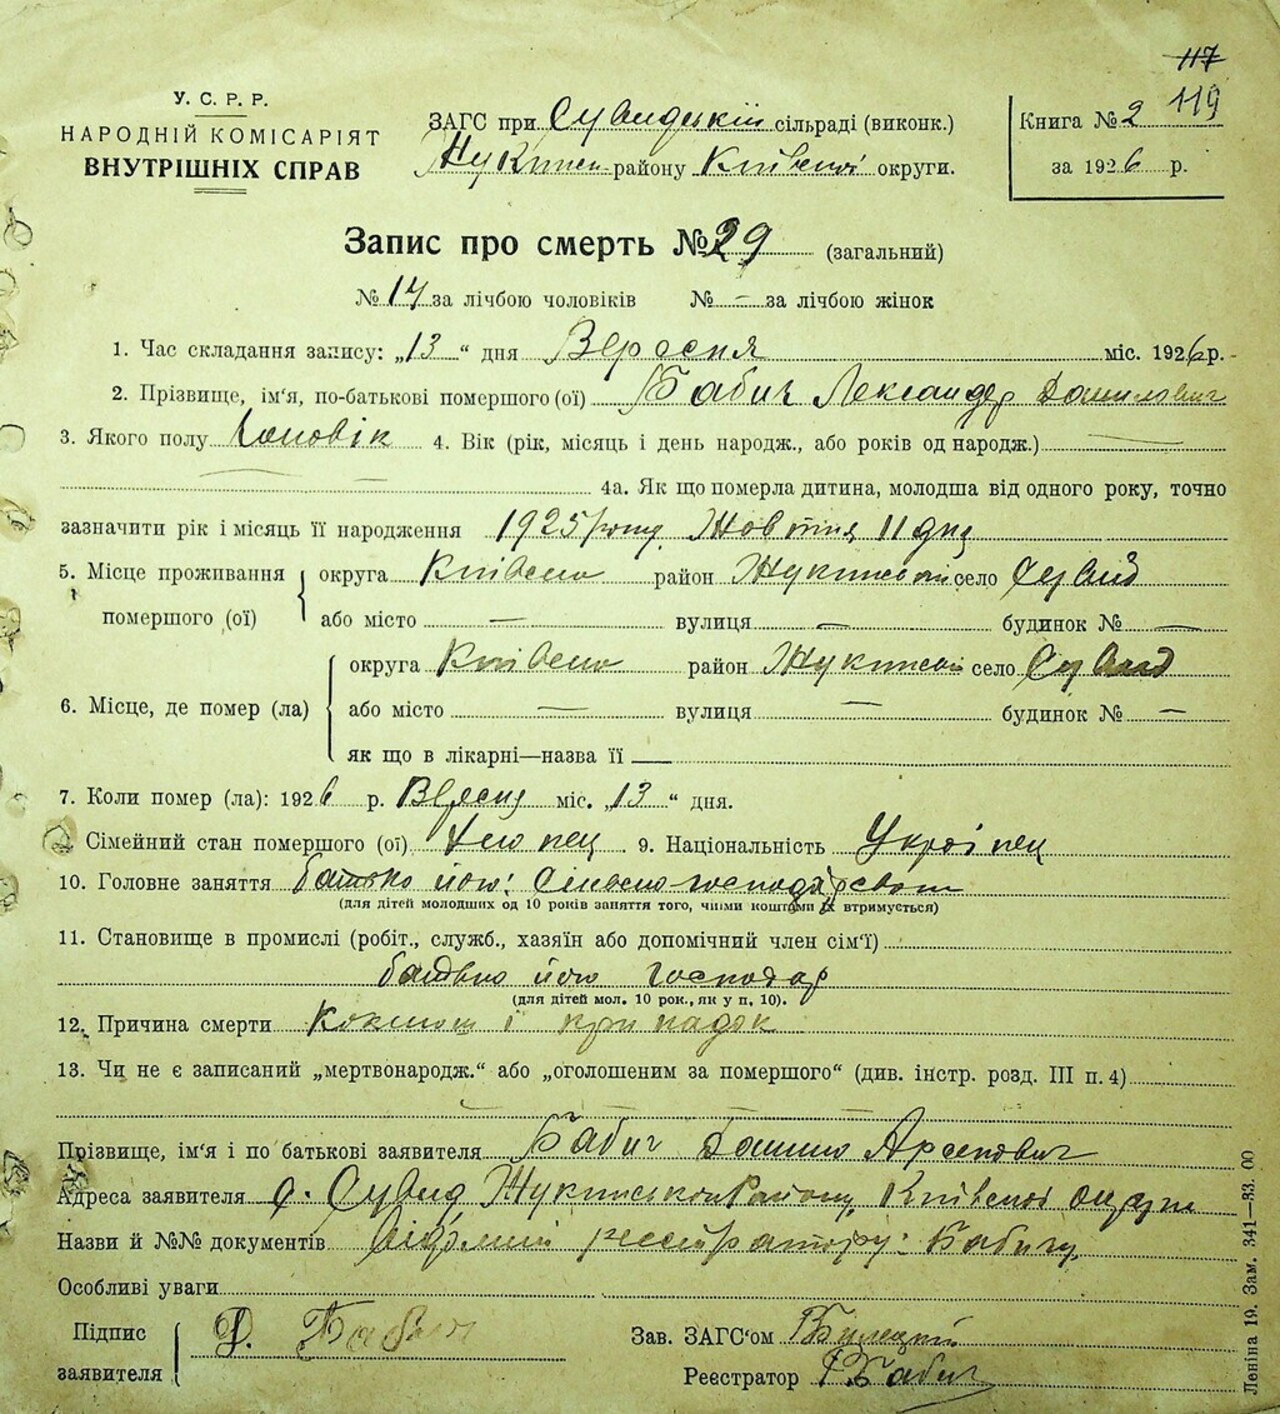 117
119
У. С. Р. Р.
НАРОДНІЙ КОМІСАРІЯТ
ВНУТРІШНІХ СПРАВ
ЗАГС при Сувидській сільраді (виконк.)
Жукинсь району Київської округи.
Книга № 2
за 1926 р.
Запис про смерть № 29 (загальний)
№ 14 за лічбою чоловіків № — за лічбою жінок
1. Час складання запису: „13“ дня Вересня міс. 1926 р.
2. Прізвище, ім'я, по-батькові помершого (ої) Бабич Лександер Данилович
3. Якого полу Чоловік 4. Вік (рік, місяць і день народж., або років од народж.) —
— — 4а. Як що померла дитина, молодша від одного року, точно
зазначити рік і місяць її народження 1925 року Жовтня 11 дня
5. Місце проживання помершого (ої) округа Київська район Жукинський село Сувид
або місто — вулиця — будинок № —
6. Місце, де помер (ла) округа Київська район Жукинський село Сувид
або місто — вулиця — будинок № —
як що в лікарні—назва її —
7. Коли помер (ла): 1926 р. Вересня міс. „13“ дня.
Сімейний стан помершого (ої) Хлопець 9. Національність Українець
10. Головне заняття батько його: Сільське господарство
(для дітей молодших од 10 років заняття того, чиїми коштами їх втримується)
11. Становище в промислі (робіт., служб., хазяїн або допомічний член сім'ї)
батько його господар
(для дітей мол. 10 рок., як у п. 10).
12. Причина смерти Коклюш і припадок
13. Чи не є записаний „мертвонародж.“ або „оголошеним за помершого“ (див. інстр. розд. III п. 4)
— — — —
Прізвище, ім'я і по батькові заявителя Бабич Данило Арсенович
Адреса заявителя с. Сувид Жукинського Району, Київської округи
Назви й №№ документів Відомий реєстратору: Бабичу,
Особливі уваги
Підпис заявителя Д. Бабич
Зав. ЗАГС'ом Билецкий
Реєстратор Бабич
Леніна 19. Зам. 341—83.00